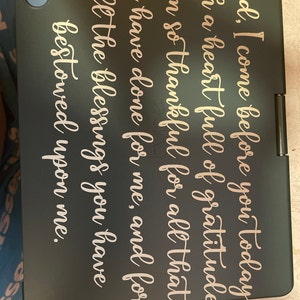 I come before you today
a heart full of gratitude
so thankful for all that
have done for me, and for
the blessings you have
bestowed upon me.